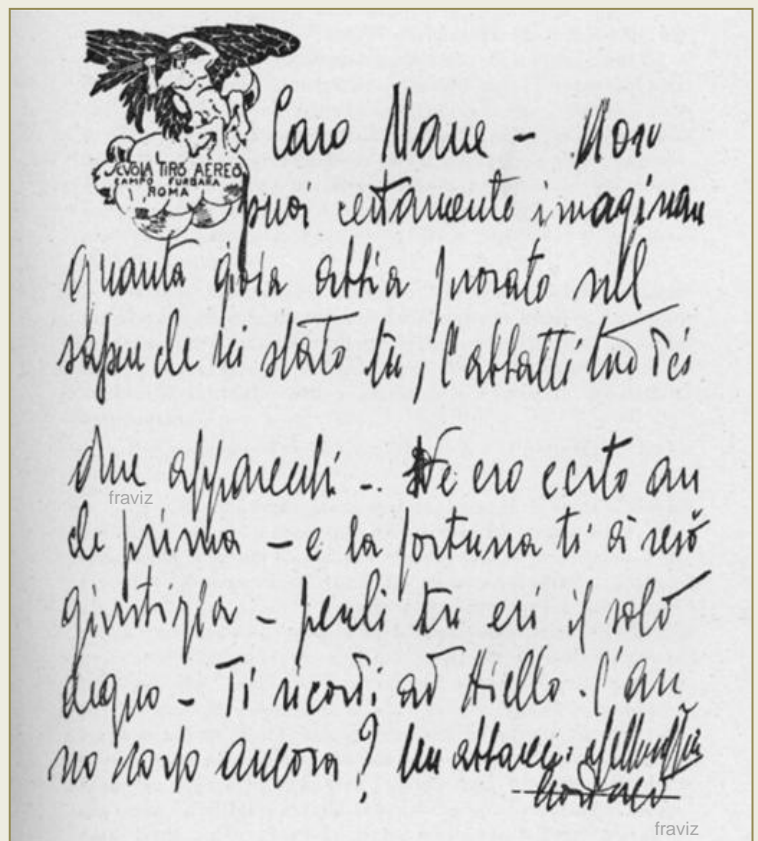 SCUOLA TIRO AEREO
CAMPO FURBARA
ROMA
Caro Nane - Non
puoi certamente imaginare
quanta gioia abbia provato nel
sapere che sei stato tu, l'abbatti dei
due apparecchi -. Ne ero certo an
fraviz
che prima - e la fortuna ti à reso
giustizia - perché tu eri il solo
degno - Ti ricordi ad Aiello. l'an
no scorso ancora? Un abbraccio
fraviz